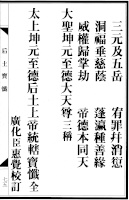 三元及五岳　宥罪幷消愆
洞福垂慈蔭　蓬瀛種善緣
威權歸掌劫　帝德本同天
大聖坤元至德大天尊三稱
太上坤元至德后土上帝統轄寶懺全
廣化臣惠覺校訂
后土寶懺